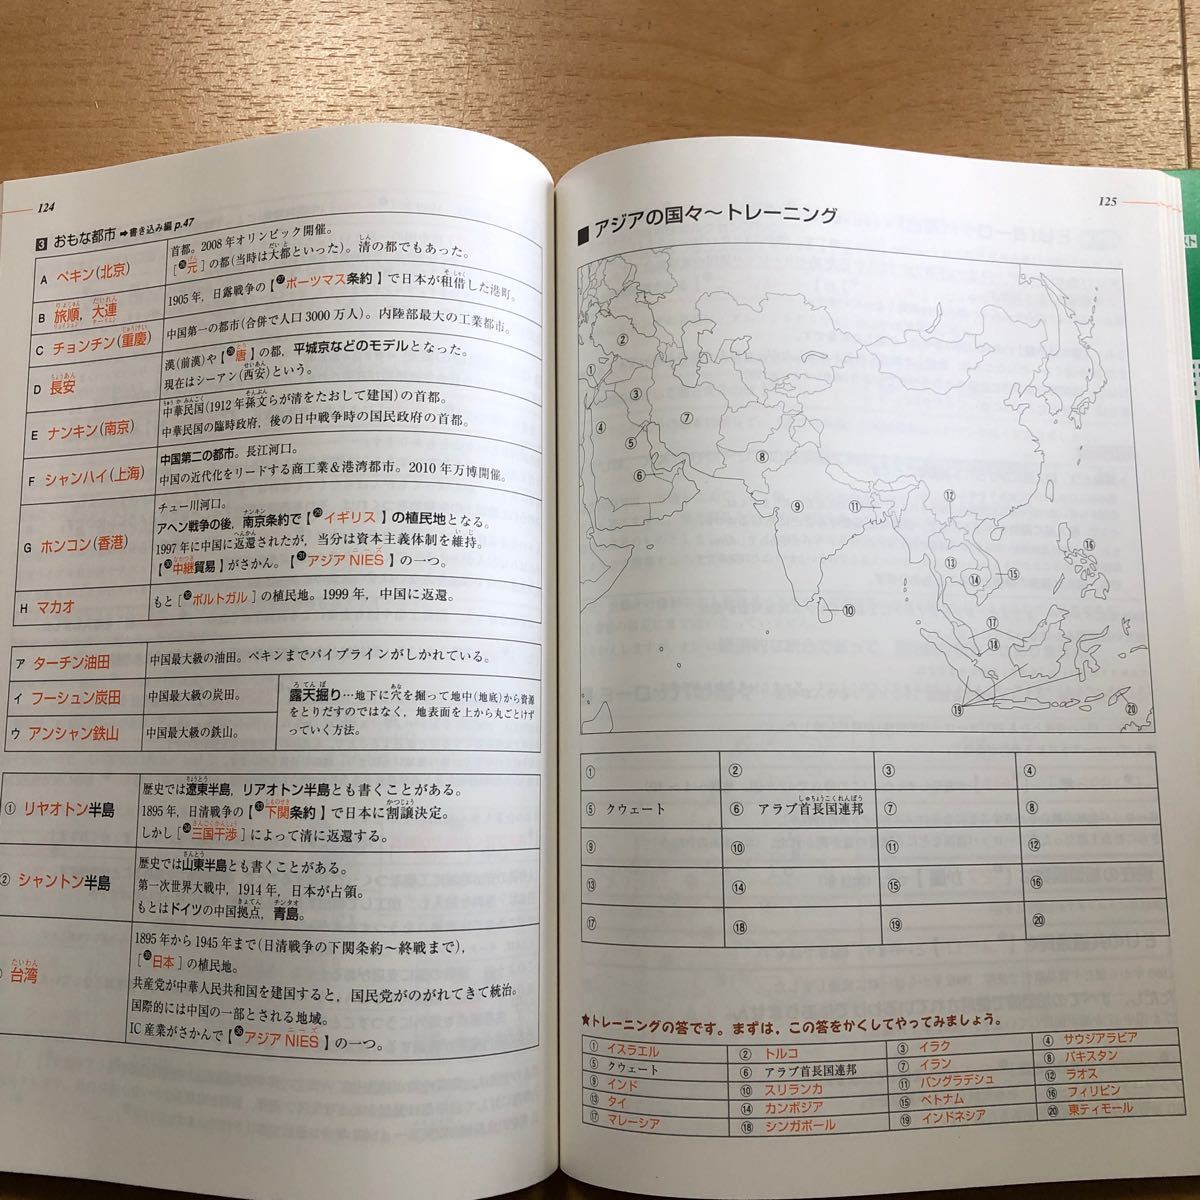 124
3 おもな都市 ➡書き込み編 p.47
A ペキン(北京)
首都。2008年オリンピック開催。
[㉖元]の都(当時は大都といった)。清の都でもあった。
B 旅順，大連
1905年，日露戦争の【㉗ポーツマス条約】で日本が租借した港町。
C チョンチン(重慶)
中国第一の都市(合併で人口3000万人)。内陸部最大の工業都市。
D 長安
漢(前漢)や【㉘唐】の都，平城京などのモデルとなった。
現在はシーアン(西安)という。
E ナンキン(南京)
中華民国(1912年孫文らが清をたおして建国)の首都。
中華民国の臨時政府，後の日中戦争時の国民政府の首都。
F シャンハイ(上海)
中国第二の都市。長江河口。
中国の近代化をリードする商工業＆港湾都市。2010年万博開催。
G ホンコン(香港)
チュー川河口。
アヘン戦争の後，南京条約で【㉙イギリス】の植民地となる。
1997年に中国に返還されたが，当分は資本主義体制を維持。
【㉚中継貿易】がさかん。【㉛アジアNIES】の一つ。
H マカオ
もと[㉜ポルトガル]の植民地。1999年，中国に返還。
ア ターチン油田
中国最大級の油田。ペキンまでパイプラインがしかれている。
イ フーシュン炭田
中国最大級の炭田。
ウ アンシャン鉄山
中国最大級の鉄山。
露天掘り…地下に穴を掘って地中(地底)から資源
をとりだすのではなく，地表面を上から丸ごとけず
っていく方法。
① リヤオトン半島
歴史では遼東半島，リアオトン半島とも書くことがある。
1895年，日清戦争の【㉝下関条約】で日本に割譲決定。
しかし[㉞三国干渉]によって清に返還する。
② シャントン半島
歴史では山東半島とも書くことがある。
第一次世界大戦中，1914年，日本が占領。
もとはドイツの中国拠点，青島。
台湾
1895年から1945年まで(日清戦争の下関条約～終戦まで)，
[㉟日本]の植民地。
共産党が中華人民共和国を建国すると，国民党がのがれてきて統治。
国際的には中国の一部とされる地域。
IC産業がさかんで【㊱アジアNIES】の一つ。
125
■ アジアの国々～トレーニング
①
②
③
④
⑤
⑥
⑦
⑧
⑨
⑪
⑫
⑩
⑬
⑭
⑮
⑯
⑰
⑱
⑲
⑳
① ② ③ ④
⑤ クウェート ⑥ アラブ首長国連邦 ⑦ ⑧
⑨ ⑩ ⑪ ⑫
⑬ ⑭ ⑮ ⑯
⑰ ⑱ ⑲ ⑳
★トレーニングの答です。まずは，この答をかくしてやってみましょう。
① イスラエル ② トルコ ③ イラク ④ サウジアラビア
⑤ クウェート ⑥ アラブ首長国連邦 ⑦ イラン ⑧ パキスタン
⑨ インド ⑩ スリランカ ⑪ バングラデシュ ⑫ ラオス
⑬ タイ ⑭ カンボジア ⑮ ベトナム ⑯ フィリピン
⑰ マレーシア ⑱ シンガポール ⑲ インドネシア ⑳ 東ティモール